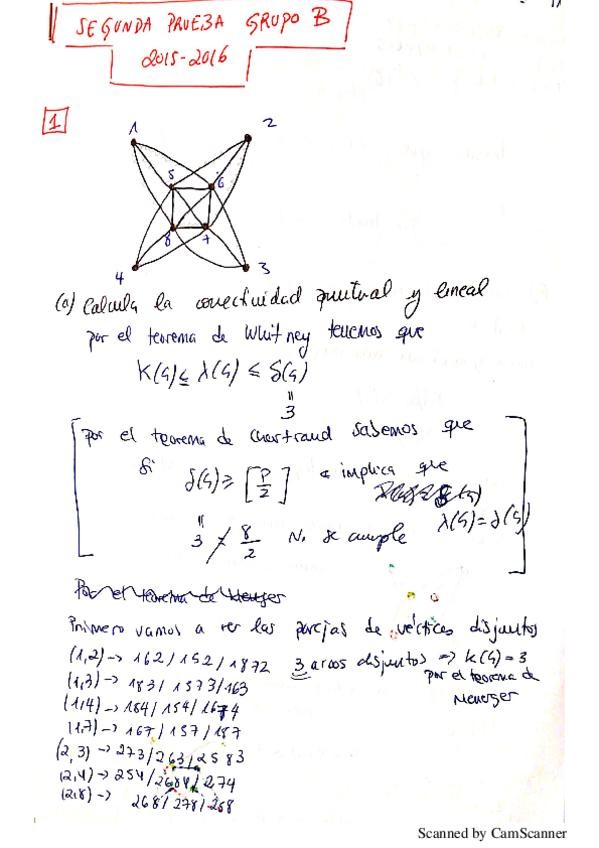 SEGUNDA PRUEBA GRUPO B
2015-2016
1
1 2
5 6
8 7
4 3
(a) Calcula la conectividad puntual y lineal
por el teorema de Whitney tenemos que
K(G) ≤ λ(G) ≤ δ(G)
=
3
por el teorema de Chartrand sabemos que
Si δ(G) ≥ [P/2] implica que
λ(G) = δ(G)
3 ≠ 8/2 No se cumple
Por el teorema de Menger
Primero vamos a ver las parejas de vértices disjuntos
(1,2) → 162 / 152 / 1872 3 arcos disjuntos ⇒ K(G) = 3
por el teorema de
Menerger
(1,3) → 183 / 1573 / 163
(1,4) → 184 / 154 / 1674
(1,7) → 167 / 157 / 187
(2,3) → 273 / 263 / 2583
(2,4) → 254 / 2684 / 274
(2,8) → 268 / 278 / 258
Scanned by CamScanner